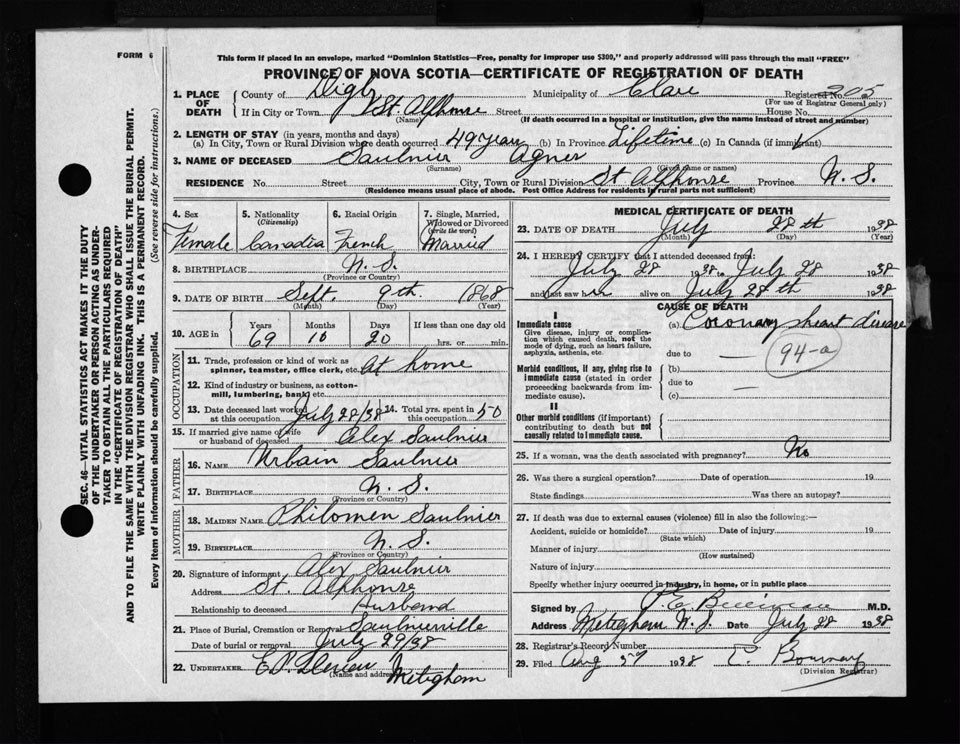 FORM 6
This form if placed in an envelope, marked "Dominion Statistics—Free, penalty for improper use $300," and properly addressed will pass through the mail "FREE"
PROVINCE OF NOVA SCOTIA—CERTIFICATE OF REGISTRATION OF DEATH
1. PLACE OF DEATH
County of Digby Municipality of Clare Registered No. 205
(For use of Registrar General only)
If in City or Town St. Alphonse Street House No.
(Name) (If death occurred in a hospital or institution, give the name instead of street and number)
2. LENGTH OF STAY (in years, months and days)
(a) In City, Town or Rural Division where death occurred 49 years (b) In Province Lifetime (c) In Canada (if immigrant)
3. NAME OF DECEASED Saulnier Agnes
(Surname) (Given name or names)
RESIDENCE No. Street City, Town or Rural Division St Alphonse Province N. S.
(Residence means usual place of abode. Post Office Address for residents in rural parts not sufficient)
4. Sex Female
5. Nationality (Citizenship) Canadia
6. Racial Origin French
7. Single, Married, Widowed or Divorced (write the word) Married
8. BIRTHPLACE N. S.
(Province or Country)
9. DATE OF BIRTH Sept. 9th. 1868
(Month) (Day) (Year)
10. AGE in Years Months Days If less than one day old
69 10 20 hrs. or min.
OCCUPATION
11. Trade, profession or kind of work as spinner, teamster, office clerk, etc. At home
12. Kind of industry or business, as cotton-mill, lumbering, bank, etc.
13. Date deceased last worked at this occupation July 28/38 14. Total yrs. spent in this occupation 50
15. If married give name of wife or husband of deceased Alex Saulnier
FATHER
16. NAME Urbain Saulnier
17. BIRTHPLACE N. S.
(Province or Country)
MOTHER
18. MAIDEN NAME Philomen Saulnier
19. BIRTHPLACE N. S.
(Province or Country)
20. Signature of informant Alex Saulnier
Address St. Alphonse
Relationship to deceased Husband
21. Place of Burial, Cremation or Removal Saulnierville
Date of burial or removal July 29/38
22. UNDERTAKER
(Name and address) Metegham
MEDICAL CERTIFICATE OF DEATH
23. DATE OF DEATH July 28th 1938
(Month) (Day) (Year)
24. I HEREBY CERTIFY that I attended deceased from:
July 28 1938 to July 28 1938
and last saw her alive on July 28th 1938
CAUSE OF DEATH
I
Immediate cause
Give disease, injury or complication which caused death, not the mode of dying, such as heart failure, asphyxia, asthenia, etc.
(a) Coronary heart disease
due to —
94-a
Morbid conditions, if any, giving rise to immediate cause (stated in order proceeding backwards from immediate cause).
(b)
due to —
(c)
II
Other morbid conditions (if important) contributing to death but not causally related to immediate cause.
25. If a woman, was the death associated with pregnancy? No
26. Was there a surgical operation? Date of operation 19
State findings Was there an autopsy?
27. If death was due to external causes (violence) fill in also the following:—
Accident, suicide or homicide? Date of injury 19
(State which)
Manner of injury
(How sustained)
Nature of injury
Specify whether injury occurred in industry, in home, or in public place
Signed by M.D.
Address Metegham N. S. Date July 28 1938
28. Registrar's Record Number
29. Filed Aug 1938
(Division Registrar)
SEC. 46—VITAL STATISTICS ACT MAKES IT THE DUTY
OF THE UNDERTAKER OR PERSON ACTING AS UNDER-
TAKER TO OBTAIN ALL THE PARTICULARS REQUIRED
IN THE "CERTIFICATE OF REGISTRATION OF DEATH"
AND TO FILE THE SAME WITH THE DIVISION REGISTRAR WHO SHALL ISSUE THE BURIAL PERMIT.
WRITE PLAINLY WITH UNFADING INK. THIS IS A PERMANENT RECORD.
Every item of information should be carefully supplied. (See reverse side for instructions.)